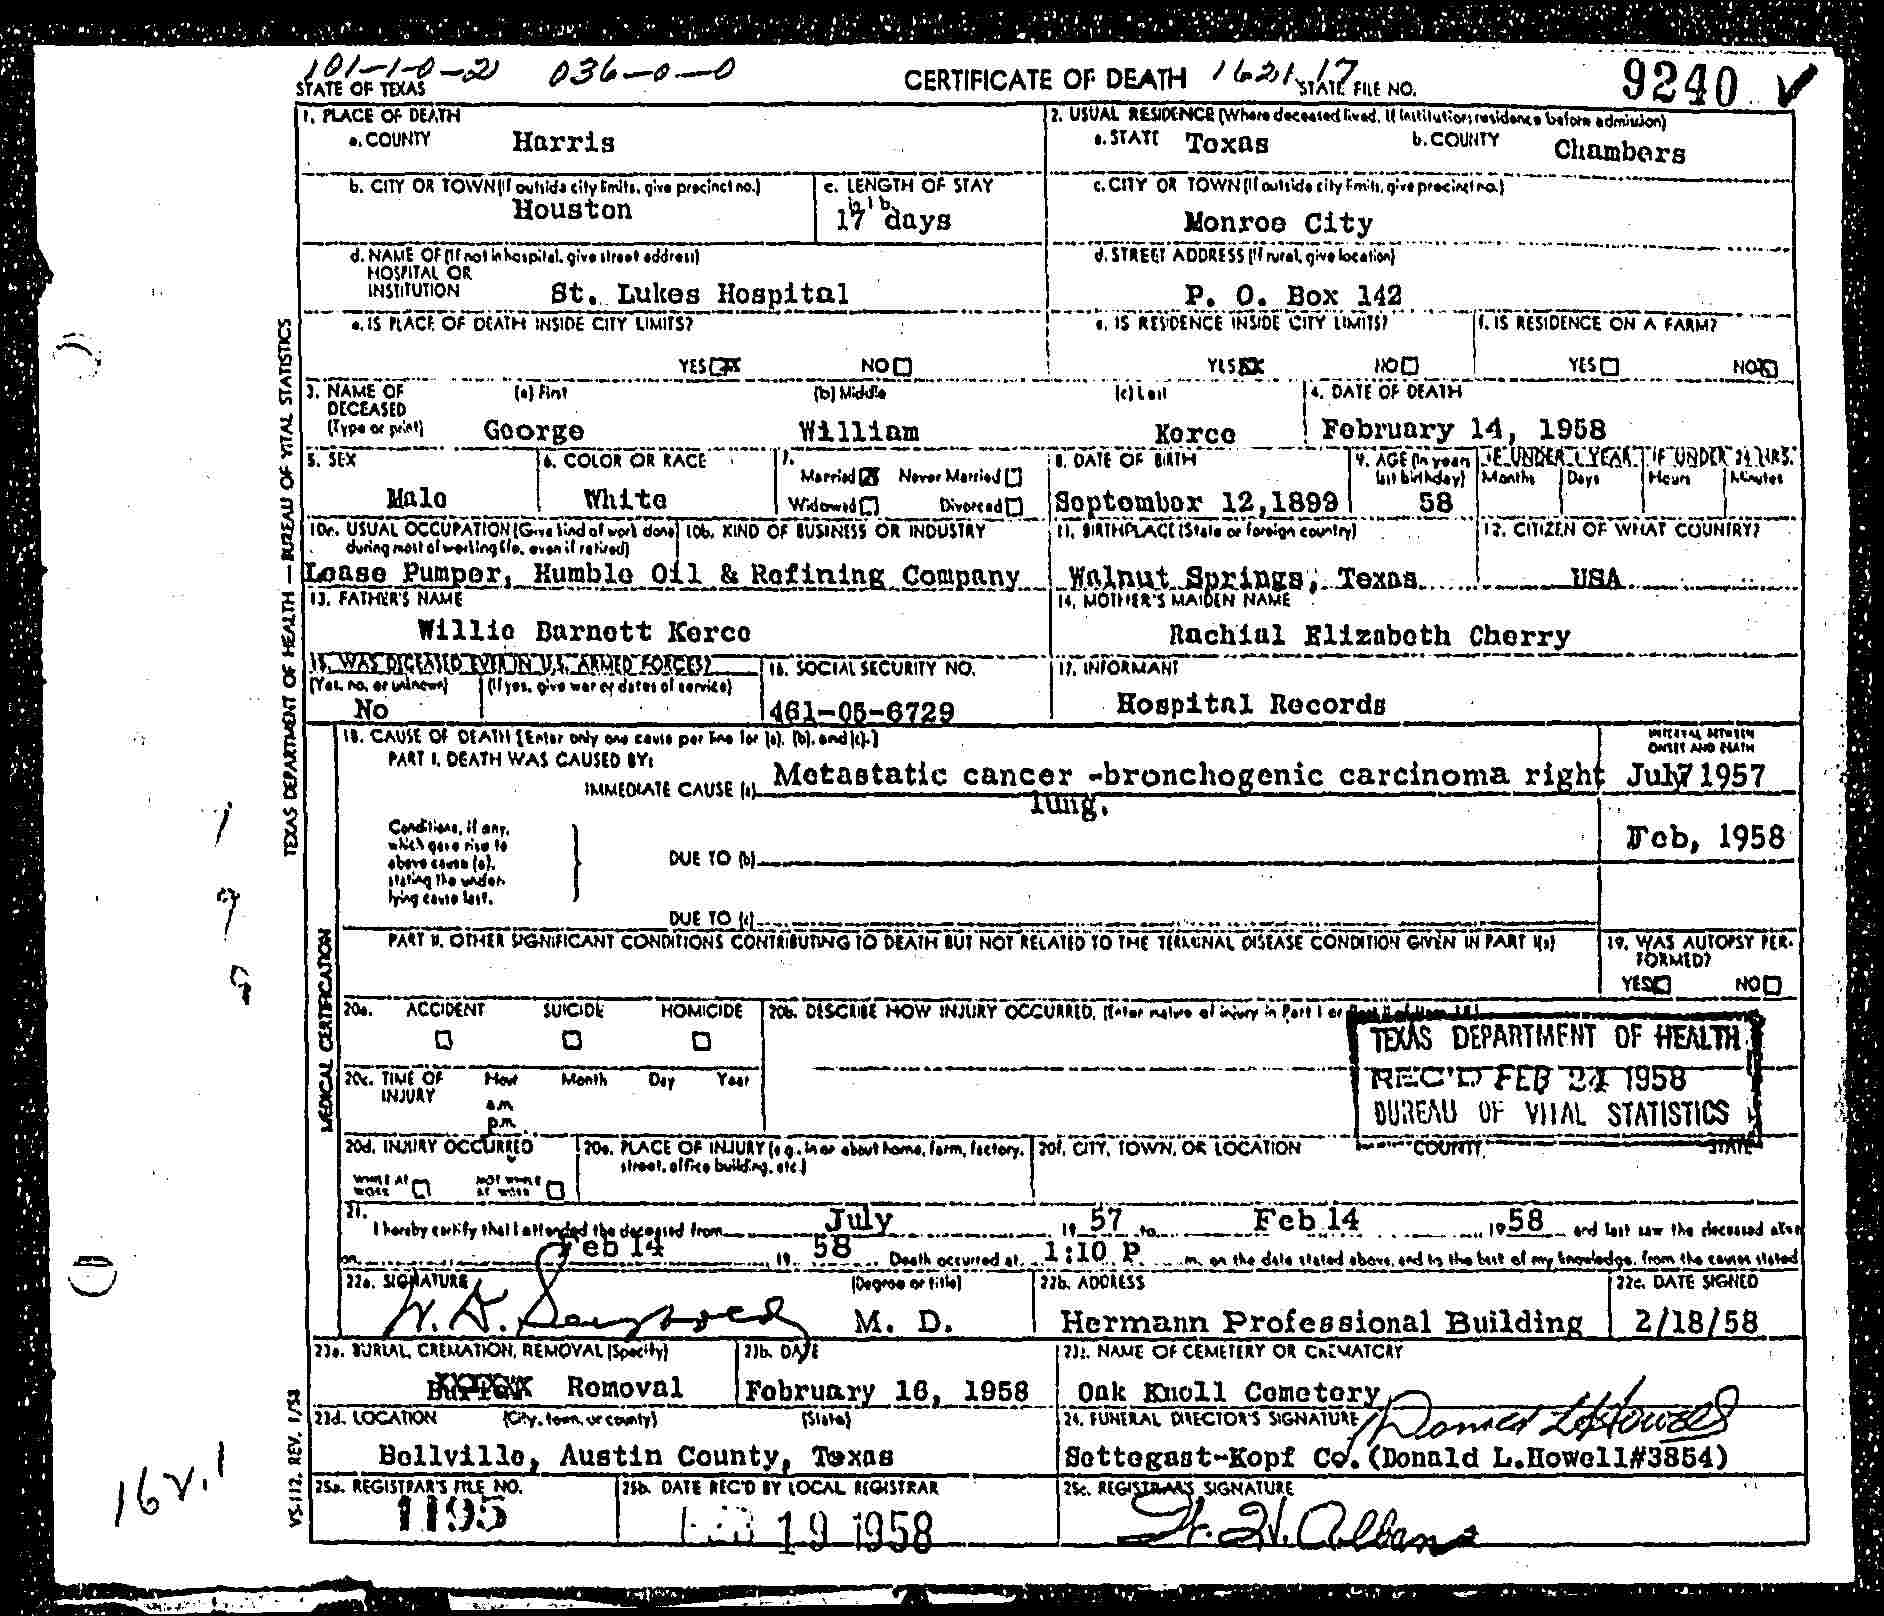 101-1-0-2 036-0-0 CERTIFICATE OF DEATH 1621-17 9240 ✓
STATE OF TEXAS STATE FILE NO.
1. PLACE OF DEATH
a. COUNTY Harris
2. USUAL RESIDENCE (Where deceased lived. If institution: residence before admission)
a. STATE Texas b. COUNTY Chambers
b. CITY OR TOWN (If outside city limits, give precinct no.)
Houston
c. LENGTH OF STAY
in 1b.
17 days
c. CITY OR TOWN (If outside city limits, give precinct no.)
Monroe City
d. NAME OF (If not in hospital, give street address)
HOSPITAL OR
INSTITUTION St. Lukes Hospital
d. STREET ADDRESS (If rural, give location)
P. O. Box 142
e. IS PLACE OF DEATH INSIDE CITY LIMITS?
YES XX NO
e. IS RESIDENCE INSIDE CITY LIMITS?
YES XX NO
f. IS RESIDENCE ON A FARM?
YES NO X
3. NAME OF (a) First (b) Middle (c) Last
DECEASED
(Type or print) George William Kerce
4. DATE OF DEATH
February 14, 1958
5. SEX
Male
6. COLOR OR RACE
White
7.
Married X Never Married
Widowed Divorced
8. DATE OF BIRTH
September 12,1899
9. AGE (In years
last birthday)
58
IF UNDER 1 YEAR
Months Days
IF UNDER 24 HRS.
Hours Minutes
10a. USUAL OCCUPATION (Give kind of work done
during most of working life, even if retired)
10b. KIND OF BUSINESS OR INDUSTRY
Lease Pumper, Humble Oil & Refining Company
11. BIRTHPLACE (State or foreign country)
Walnut Springs, Texas
12. CITIZEN OF WHAT COUNTRY?
USA
13. FATHER'S NAME
Willie Barnett Kerce
14. MOTHER'S MAIDEN NAME
Rachial Elizabeth Cherry
15. WAS DECEASED EVER IN U.S. ARMED FORCES?
(Yes, no, or unknown) (If yes, give war or dates of service)
No
16. SOCIAL SECURITY NO.
461-05-6729
17. INFORMANT
Hospital Records
18. CAUSE OF DEATH [Enter only one cause per line for (a), (b), and (c).]
PART I. DEATH WAS CAUSED BY:
IMMEDIATE CAUSE (a) Metastatic cancer -bronchogenic carcinoma right
lung.
INTERVAL BETWEEN
ONSET AND DEATH
July 1957
Feb, 1958
Conditions, if any,
which gave rise to
above cause (a),
stating the under-
lying cause last.
DUE TO (b)
DUE TO (c)
PART II. OTHER SIGNIFICANT CONDITIONS CONTRIBUTING TO DEATH BUT NOT RELATED TO THE TERMINAL DISEASE CONDITION GIVEN IN PART I(a)
19. WAS AUTOPSY PER-
FORMED?
YES X NO
20a. ACCIDENT SUICIDE HOMICIDE
20b. DESCRIBE HOW INJURY OCCURRED. (Enter nature of injury in Part I or Part II of Item 18.)
TEXAS DEPARTMENT OF HEALTH
REC'D FEB 24 1958
BUREAU OF VITAL STATISTICS
20c. TIME OF Hour Month Day Year
INJURY
a.m.
p.m.
20d. INJURY OCCURRED
WHILE AT
WORK
NOT WHILE
AT WORK
20e. PLACE OF INJURY (e.g., in or about home, farm, factory,
street, office building, etc.)
20f. CITY, TOWN, OR LOCATION COUNTY STATE
21.
I hereby certify that I attended the deceased from July 19 57 to Feb 14 1958 and last saw the deceased alive
on Feb 14 19 58 Death occurred at 1:10 P m. on the date stated above, and to the best of my knowledge, from the causes stated
22a. SIGNATURE (Degree or title)
M. D.
22b. ADDRESS
Hermann Professional Building
22c. DATE SIGNED
2/18/58
23a. BURIAL, CREMATION, REMOVAL (Specify)
Removal
23b. DATE
February 16, 1958
23c. NAME OF CEMETERY OR CREMATORY
Oak Knoll Cemetery
23d. LOCATION (City, town, or county) (State)
Bellville, Austin County, Texas
24. FUNERAL DIRECTOR'S SIGNATURE Donald L Howell
Settegast-Kopf Co. (Donald L.Howell#3854)
25a. REGISTRAR'S FILE NO.
1195
25b. DATE REC'D BY LOCAL REGISTRAR
19 1958
25c. REGISTRAR'S SIGNATURE
TEXAS DEPARTMENT OF HEALTH — BUREAU OF VITAL STATISTICS
MEDICAL CERTIFICATION
VS-112, REV. 1/58